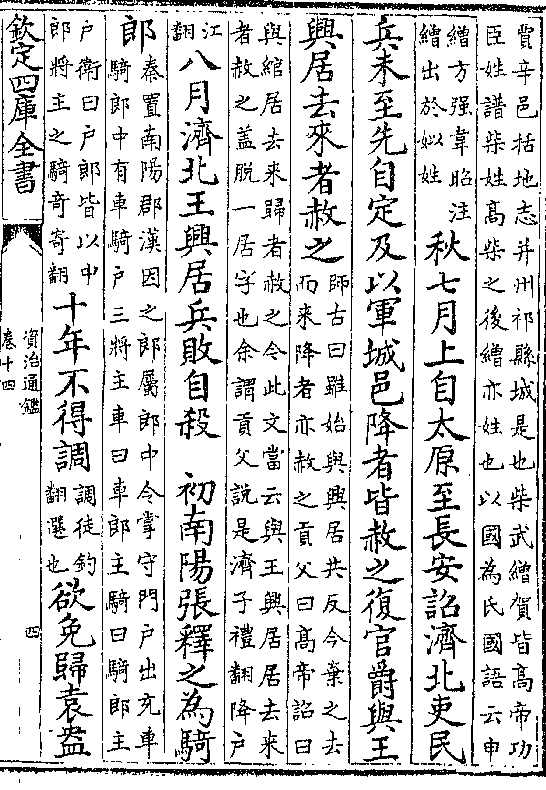 賈辛邑括地志并州祁縣城是也柴武繒賀皆高帝功
臣姓譜柴姓高柴之後繒亦姓也以國為氏國語云申
繒方强韋昭注
繒出於姒姓
秋七月上自太原至長安詔濟北吏民
兵未至先自定及以軍城邑降者皆赦之復官爵與王
興居去來者赦之
師古曰雖始與興居共反今棄之去
而来降者亦赦之貢父曰高帝詔曰
與綰居去来歸者赦之令此文當云與王興居居去来
者赦之盖脱一居字也余謂貢父說是濟子禮翻降户
江
翻
八月濟北王興居兵敗自殺 初南陽張釋之為騎
郎
秦置南陽郡漢因之郎屬郎中令掌守門户出充車
騎郎中有車騎户三將主車曰車郎主騎曰騎郎主
户衛曰户郎皆以中
郎將主之騎奇寄翻
十年不得調
調徒釣
翻選也
欲免歸袁盎
欽定四庫全書
資治通鑑
卷十四
四